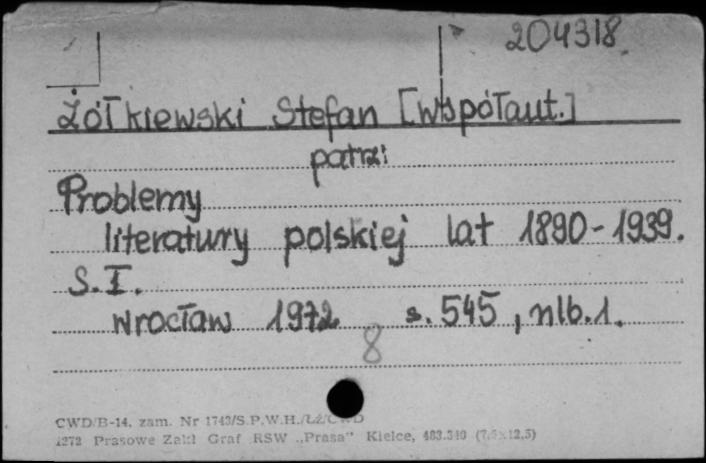 204318
Żółkiewski Stefan [współaut.]
patrz:
Problemy
literatury polskiej lat 1890-1939.
S.I.
Wrocław 1972 s. 545, nlb.1.
8
CWD/B-14. zam. Nr 1743/S.P.W.H./ŁŻ/CWD
1272 Prasowe Zakł Graf RSW „Prasa" Kielce, 483.340 (7,5×12,5)